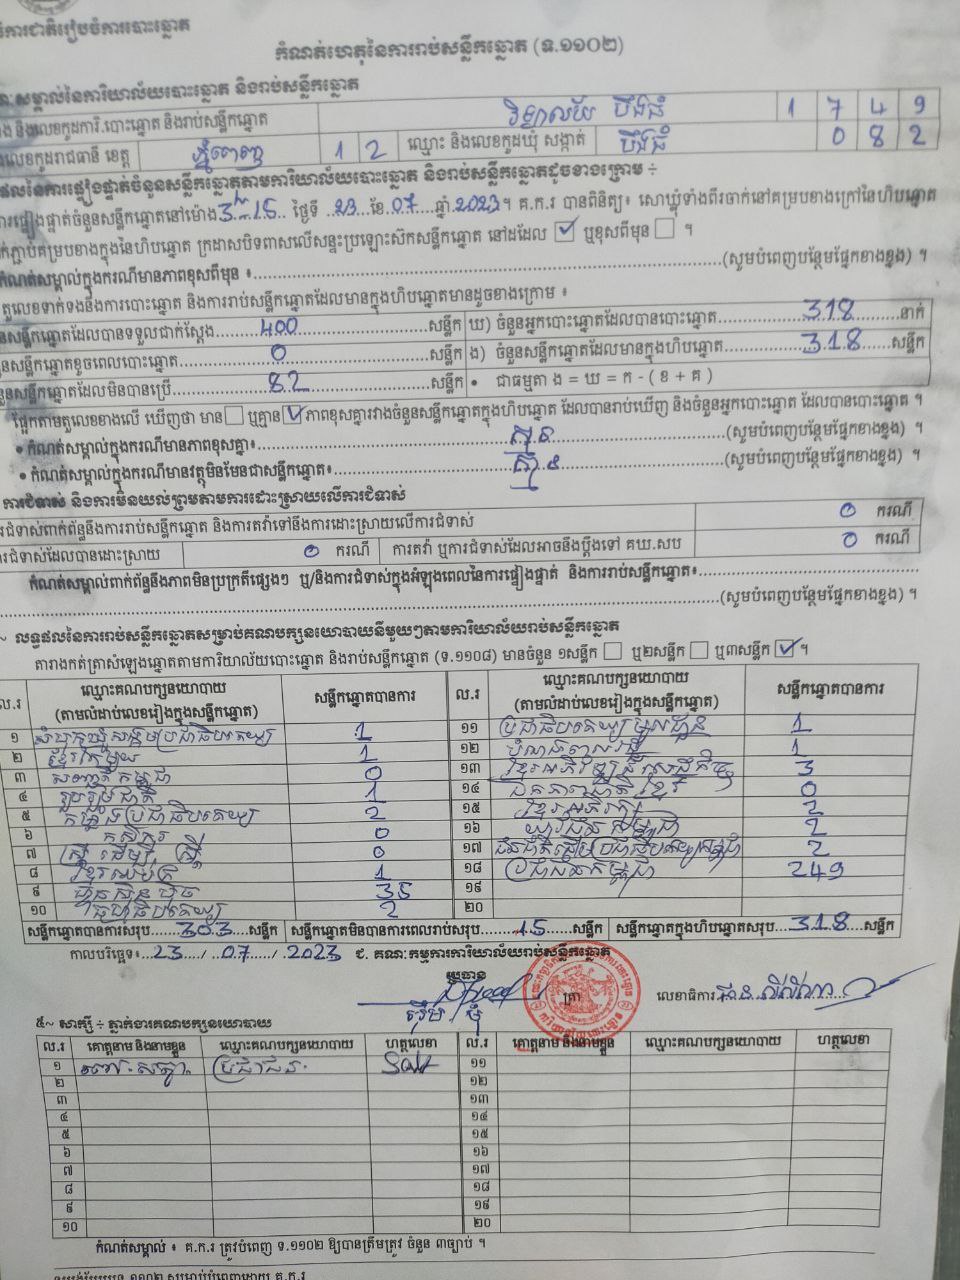 ការជាតិរៀបចំការបោះឆ្នោត
កំណត់ហេតុនៃការរាប់សន្លឹកឆ្នោត (ទ.១១០២)
សម្គាល់នៃការិយាល័យបោះឆ្នោត និងរាប់សន្លឹកឆ្នោត
និងលេខកូដការិ.បោះឆ្នោត និងរាប់សន្លឹកឆ្នោត វិទ្យាល័យ បឹងធំ 1 7 4 9
លេខកូដរាជធានី ខេត្ត ភ្នំពេញ 1 2 ឈ្មោះ និងលេខកូដឃុំ សង្កាត់ បឹងធំ 0 8 2
ផលនៃការផ្ទៀងផ្ទាត់ចំនួនសន្លឹកឆ្នោតតាមការិយាល័យបោះឆ្នោត និងរាប់សន្លឹកឆ្នោតដូចខាងក្រោម ÷
ការផ្ទៀងផ្ទាត់ចំនួនសន្លឹកឆ្នោតនៅម៉ោង 3h15 ថ្ងៃទី 23 ខែ 07 ឆ្នាំ 2023។ គ.ក.រ បានពិនិត្យ៖ សោឃ្លុំទាំងពីរចាក់នៅគម្របខាងក្រៅនៃហិបឆ្នោត
ភ្ជាប់គម្របខាងក្នុងនៃហិបឆ្នោត ក្រដាសបិទពាសលើសន្ទះប្រឡោះស៊កសន្លឹកឆ្នោត នៅដដែល ☑ ឬខុសពីមុន ☐ ។
កំណត់សម្គាល់ក្នុងករណីមានភាពខុសពីមុន ៖ (សូមបំពេញបន្ថែមផ្នែកខាងខ្នង) ។
តួលេខទាក់ទងនឹងការបោះឆ្នោត និងការរាប់សន្លឹកឆ្នោតដែលមានក្នុងហិបឆ្នោតមានដូចខាងក្រោម ៖
សន្លឹកឆ្នោតដែលបានទទួលជាក់ស្តែង 400 សន្លឹក ឃ) ចំនួនអ្នកបោះឆ្នោតដែលបានបោះឆ្នោត 318 នាក់
សន្លឹកឆ្នោតខូចពេលបោះឆ្នោត 0 សន្លឹក ង) ចំនួនសន្លឹកឆ្នោតដែលមានក្នុងហិបឆ្នោត 318 សន្លឹក
សន្លឹកឆ្នោតដែលមិនបានប្រើ 82 សន្លឹក • ជាធម្មតា ង = ឃ = ក - ( ខ + គ )
ផ្អែកតាមតួលេខខាងលើ ឃើញថា មាន ☐ ឬគ្មាន ☑ ភាពខុសគ្នារវាងចំនួនសន្លឹកឆ្នោតក្នុងហិបឆ្នោត ដែលបានរាប់ឃើញ និងចំនួនអ្នកបោះឆ្នោត ដែលបានបោះឆ្នោត ។
• កំណត់សម្គាល់ក្នុងករណីមានភាពខុសគ្នា៖ គ្មាន (សូមបំពេញបន្ថែមផ្នែកខាងខ្នង) ។
• កំណត់សម្គាល់ក្នុងករណីមានវត្ថុមិនមែនជាសន្លឹកឆ្នោត៖ គ្មាន (សូមបំពេញបន្ថែមផ្នែកខាងខ្នង) ។
ការជំទាស់ និងការមិនយល់ព្រមតាមការដោះស្រាយលើការជំទាស់
ការជំទាស់ពាក់ព័ន្ធនឹងការរាប់សន្លឹកឆ្នោត និងការតវ៉ាទៅនឹងការដោះស្រាយលើការជំទាស់ 0 ករណី
ការជំទាស់ដែលបានដោះស្រាយ 0 ករណី ការតវ៉ា ឬការជំទាស់ដែលអាចនឹងប្តឹងទៅ គឃ.សប 0 ករណី
កំណត់សម្គាល់ពាក់ព័ន្ធនឹងភាពមិនប្រក្រតីផ្សេងៗ ឬ/និងការជំទាស់ក្នុងអំឡុងពេលនៃការផ្ទៀងផ្ទាត់ និងការរាប់សន្លឹកឆ្នោត៖
(សូមបំពេញបន្ថែមផ្នែកខាងខ្នង) ។
~ លទ្ធផលនៃការរាប់សន្លឹកឆ្នោតសម្រាប់គណបក្សនយោបាយនីមួយៗតាមការិយាល័យរាប់សន្លឹកឆ្នោត
តារាងកត់ត្រាសំឡេងឆ្នោតតាមការិយាល័យបោះឆ្នោត និងរាប់សន្លឹកឆ្នោត (ទ.១១០៨) មានចំនួន ១សន្លឹក ☐ ឬ២សន្លឹក ☐ ឬ៣សន្លឹក ☑ ។
ល.រ ឈ្មោះគណបក្សនយោបាយ (តាមលំដាប់លេខរៀងក្នុងសន្លឹកឆ្នោត) សន្លឹកឆ្នោតបានការ ល.រ ឈ្មោះគណបក្សនយោបាយ (តាមលំដាប់លេខរៀងក្នុងសន្លឹកឆ្នោត) សន្លឹកឆ្នោតបានការ
១ សំបុកឃ្មុំសង្គមប្រជាធិបតេយ្យ 1 ១១ ប្រជាធិបតេយ្យមូលដ្ឋាន 1
២ ខ្មែរតែមួយ 1 ១២ 1
៣ សញ្ជាតិកម្ពុជា 0 ១៣ ខ្មែរអភិវឌ្ឍន៍សេដ្ឋកិច្ច 3
៤ រួបរួមជាតិ 1 ១៤ ឯកភាពជាតិខ្មែរ 0
៥ កម្លាំងប្រជាធិបតេយ្យ 2 ១៥ ខ្មែរអភិរក្ស 2
៦ កសិករ 0 ១៦ យុវជនកម្ពុជា 2
៧ ស្ត្រីដើម្បីស្ត្រី 0 ១៧ ជនជាតិដើមប្រជាធិបតេយ្យកម្ពុជា 2
៨ ខ្មែរឈប់ក្រ 1 ១៨ ប្រជាជនកម្ពុជា 249
៩ ហ៊្វុនស៊ិនប៉ិច 35 ១៩
១០ ធម្មាធិបតេយ្យ 2 ២០
សន្លឹកឆ្នោតបានការសរុប 303 សន្លឹក សន្លឹកឆ្នោតមិនបានការពេលរាប់សរុប 15 សន្លឹក សន្លឹកឆ្នោតក្នុងហិបឆ្នោតសរុប 318 សន្លឹក
កាលបរិច្ឆេទ៖ 23 / 07 / 2023 ជ. គណៈកម្មការការិយាល័យរាប់សន្លឹកឆ្នោត
ប្រធាន ត្រា លេខាធិការ
៥~ សាក្សី ÷ ភ្នាក់ងារគណបក្សនយោបាយ
ល.រ គោត្តនាម និងនាមខ្លួន ឈ្មោះគណបក្សនយោបាយ ហត្ថលេខា ល.រ គោត្តនាម និងនាមខ្លួន ឈ្មោះគណបក្សនយោបាយ ហត្ថលេខា
១ ប្រជាជន ១១
២ ១២
៣ ១៣
៤ ១៤
៥ ១៥
៦ ១៦
៧ ១៧
៨ ១៨
៩ ១៩
១០ ២០
កំណត់សម្គាល់ ៖ គ.ក.រ ត្រូវបំពេញ ទ.១១០២ ឱ្យបានត្រឹមត្រូវ ចំនួន ៣ច្បាប់ ។